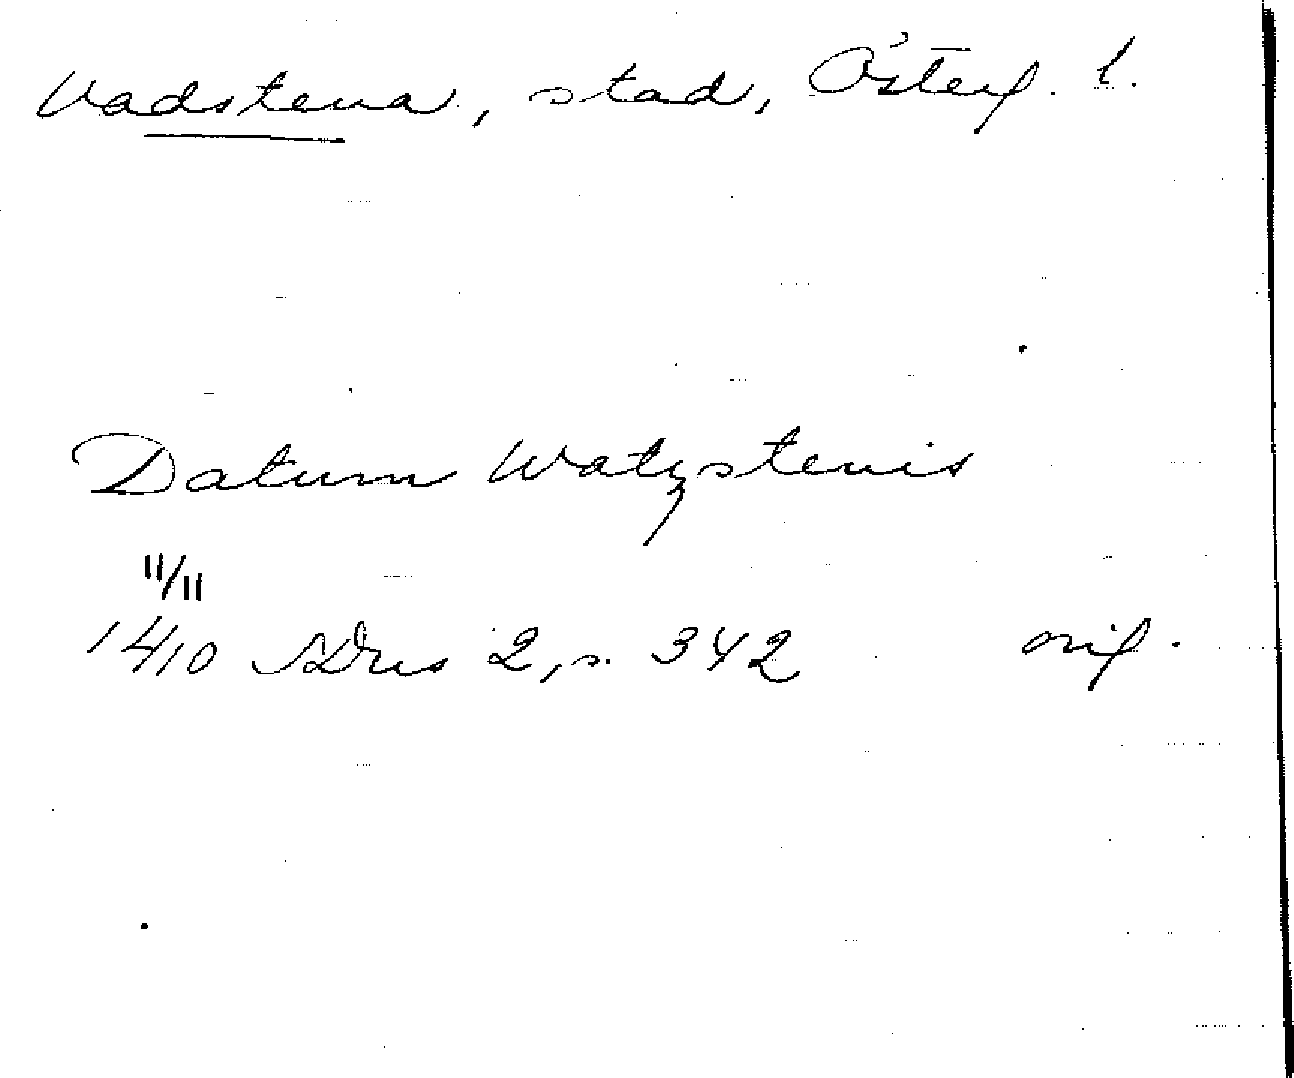 Vadstena, stad, Österg. l.
Datum Watzstenis
11/11
1410 SDns 2, s. 342 orig.